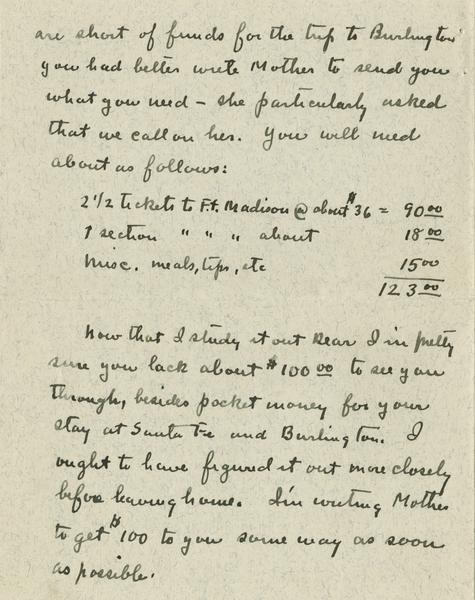 are short of funds for the trip to Burlington
you had better write Mother to send you
what you need – she particularly asked
that we call on her. You will need
about as follows:
2 1/2 tickets to Ft. Madison @ about $36 = 90.00
1 section " " " about 18.00
Misc. meals, tips, etc 15.00
123.00
Now that I study it out Dear I'm pretty
sure you lack about $100.00 to see you
through, besides pocket money for your
stay at Santa Fe and Burlington. I
ought to have figured it out more closely
before leaving home. I'm writing Mother
to get $100 to you some way as soon
as possible.